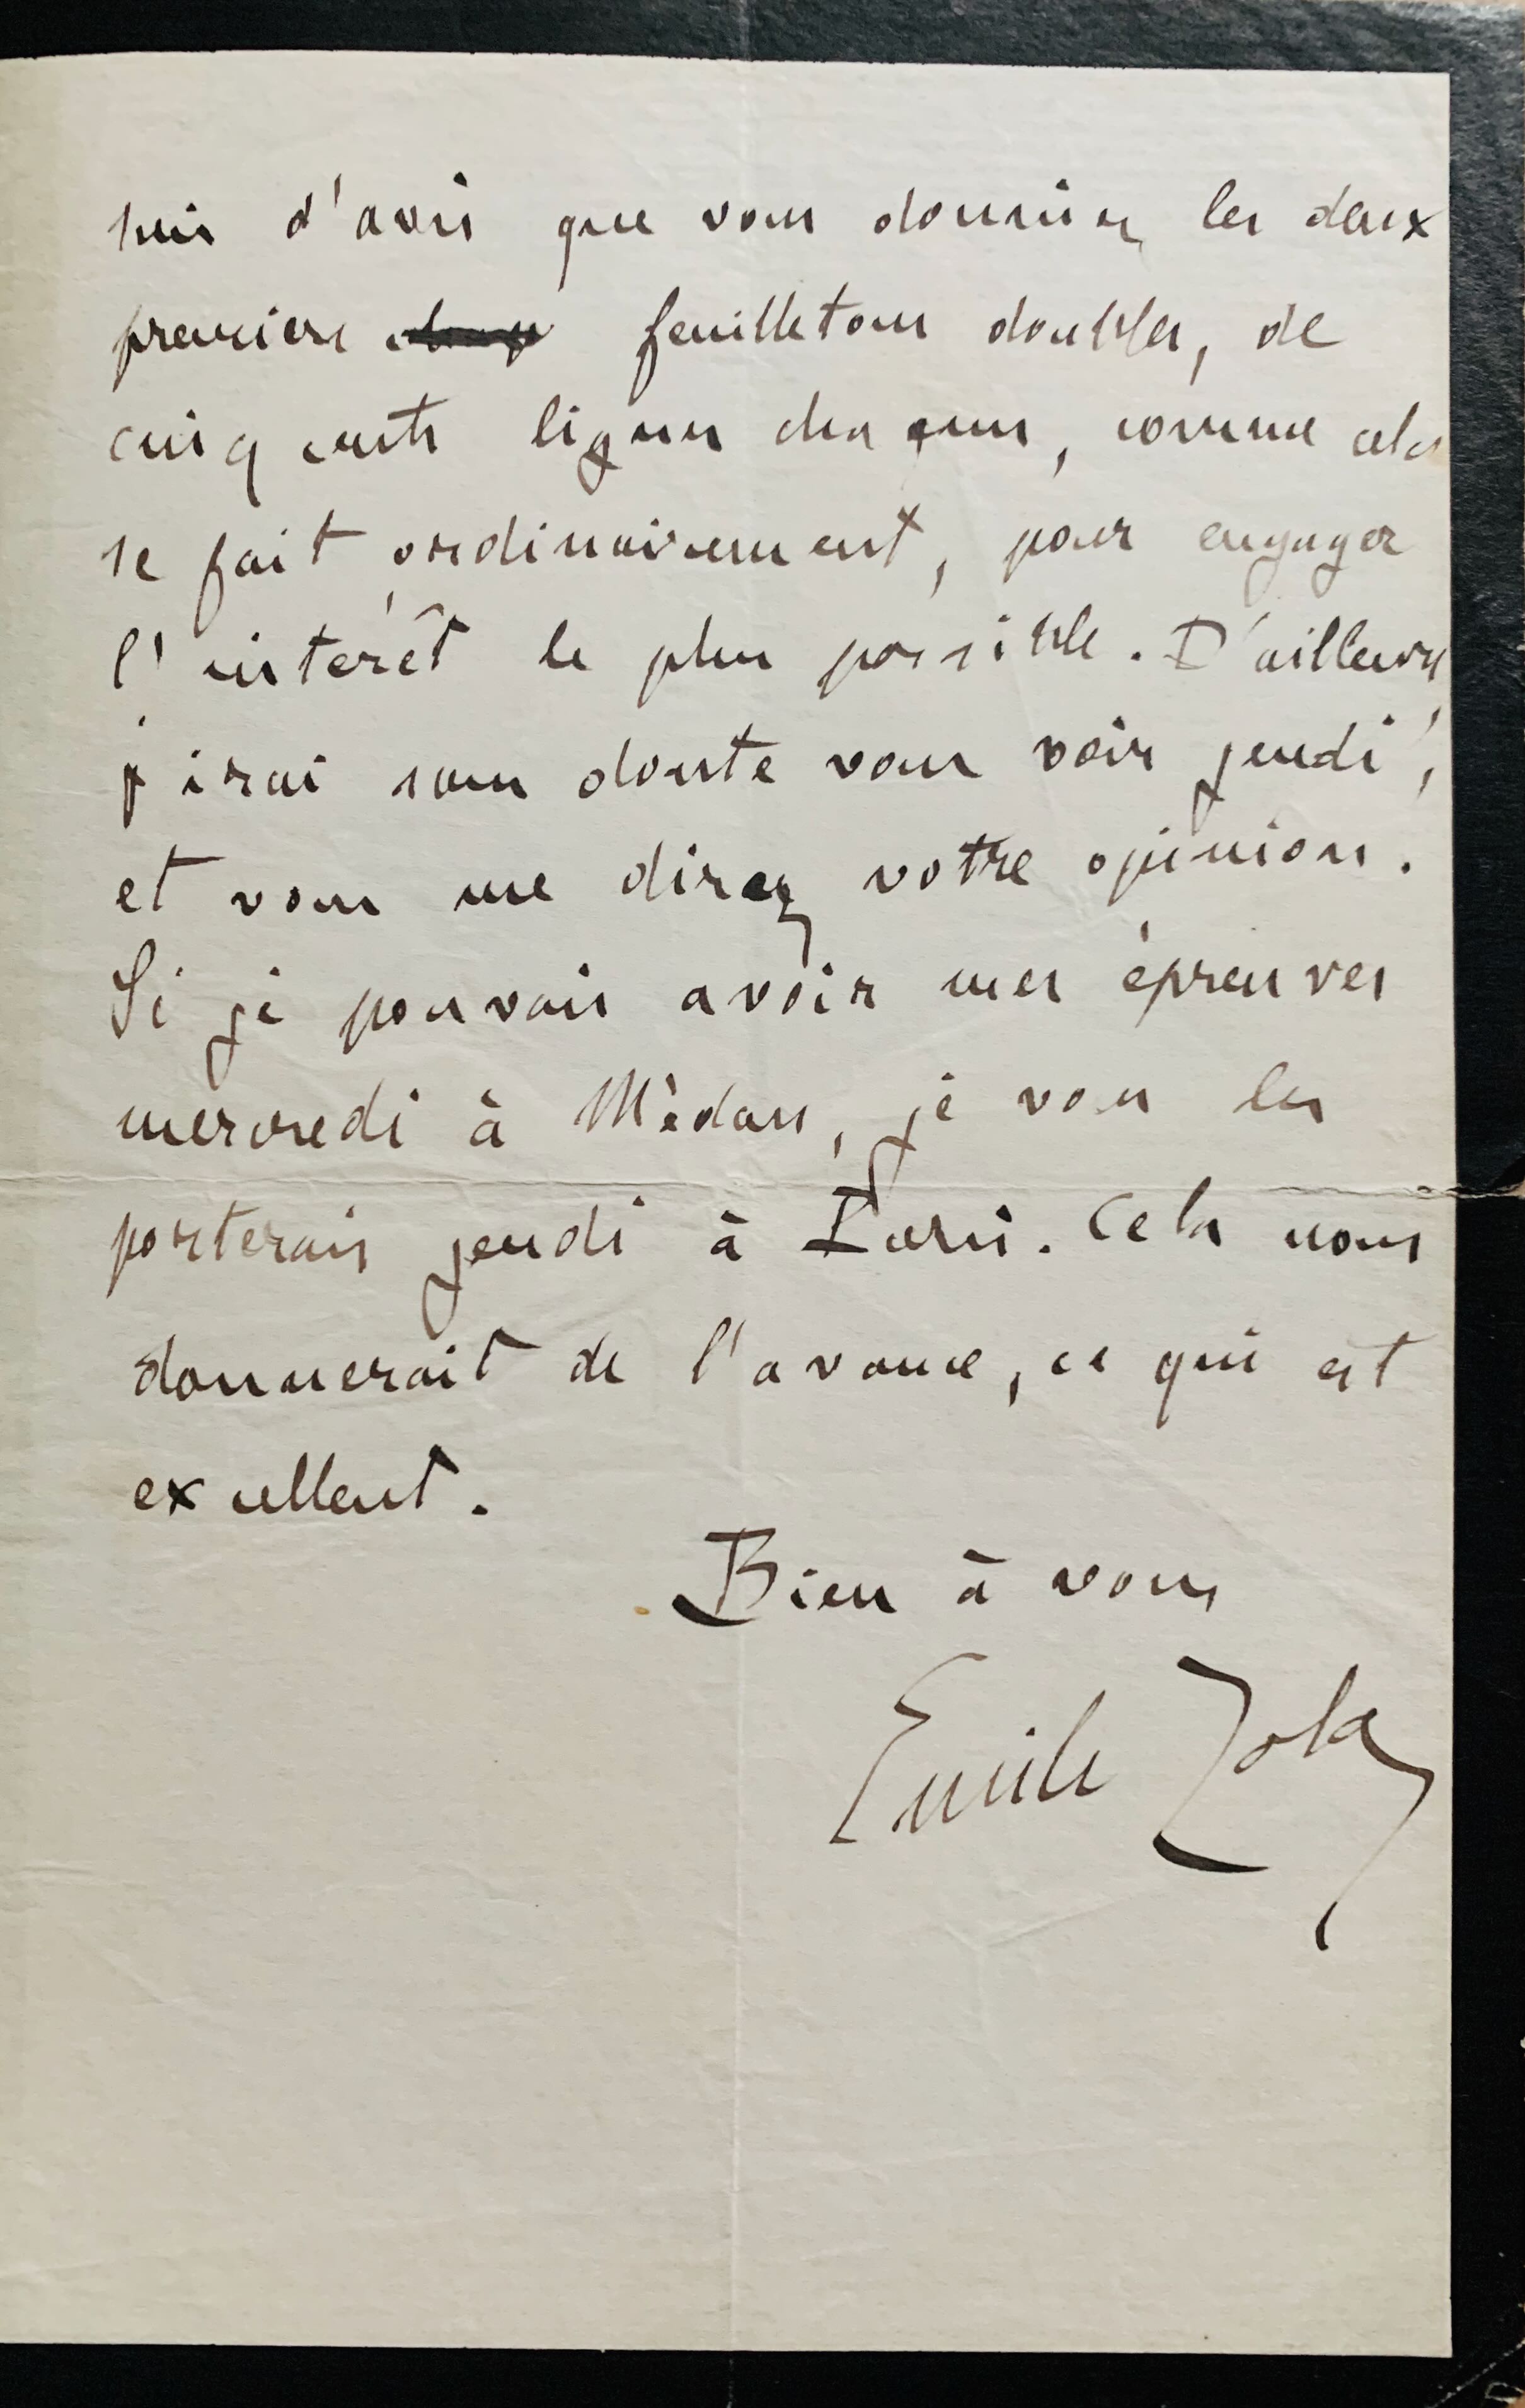 suis d'avis que vous donniez les deux
premiers feuilletons doubles, de
cinq cents lignes chacun, comme cela
se fait ordinairement, pour engager
l'intérêt le plus possible. D'ailleurs,
j'irai sans doute vous voir jeudi,
et vous me direz votre opinion.
Si je pouvais avoir mes épreuves
mercredi à Médan, je vous les
porterais jeudi à Paris. Cela nous
donnerait de l'avance, ce qui est
excellent.
Bien à vous
Emile Zola